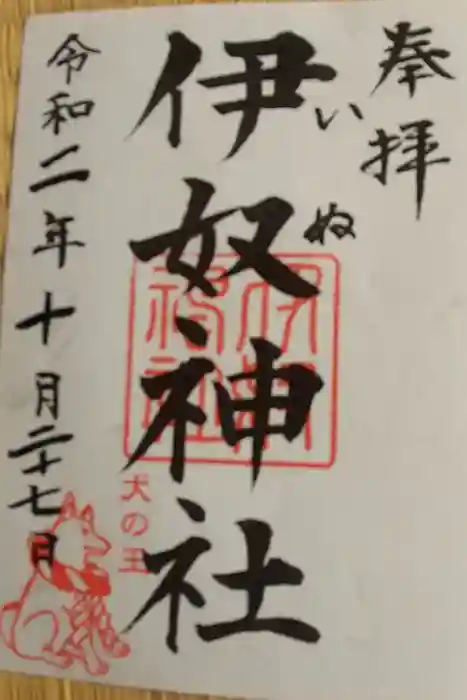 奉拝
いぬ
伊奴神社
伊奴
神社
犬の王
令和二年十月二十七日